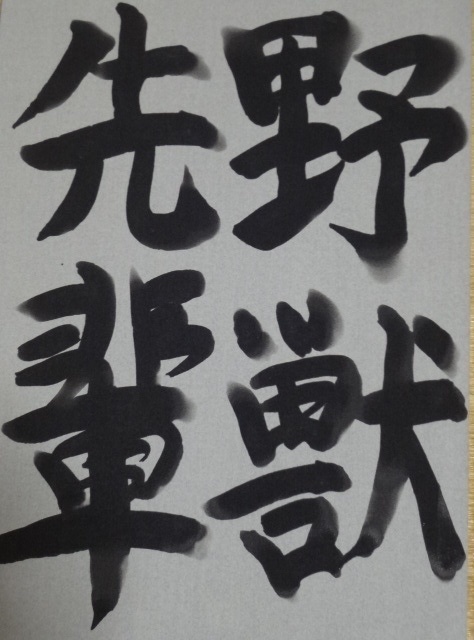 野獣
先輩